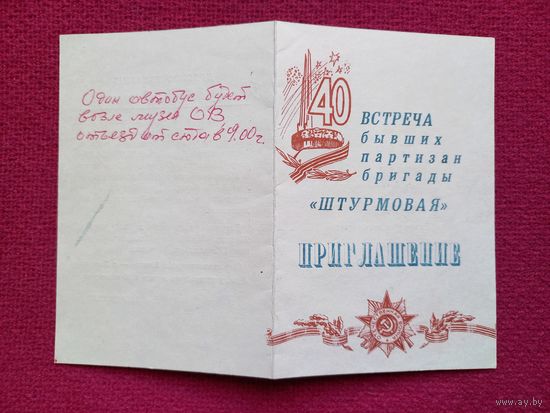 Один автобус будет
возле музея ОВ
отъезд от ст. в 9.00 г.
40
ВСТРЕЧА
бывших
партизан
бригады
«ШТУРМОВАЯ»
ПРИГЛАШЕНИЕ
www.ay.by